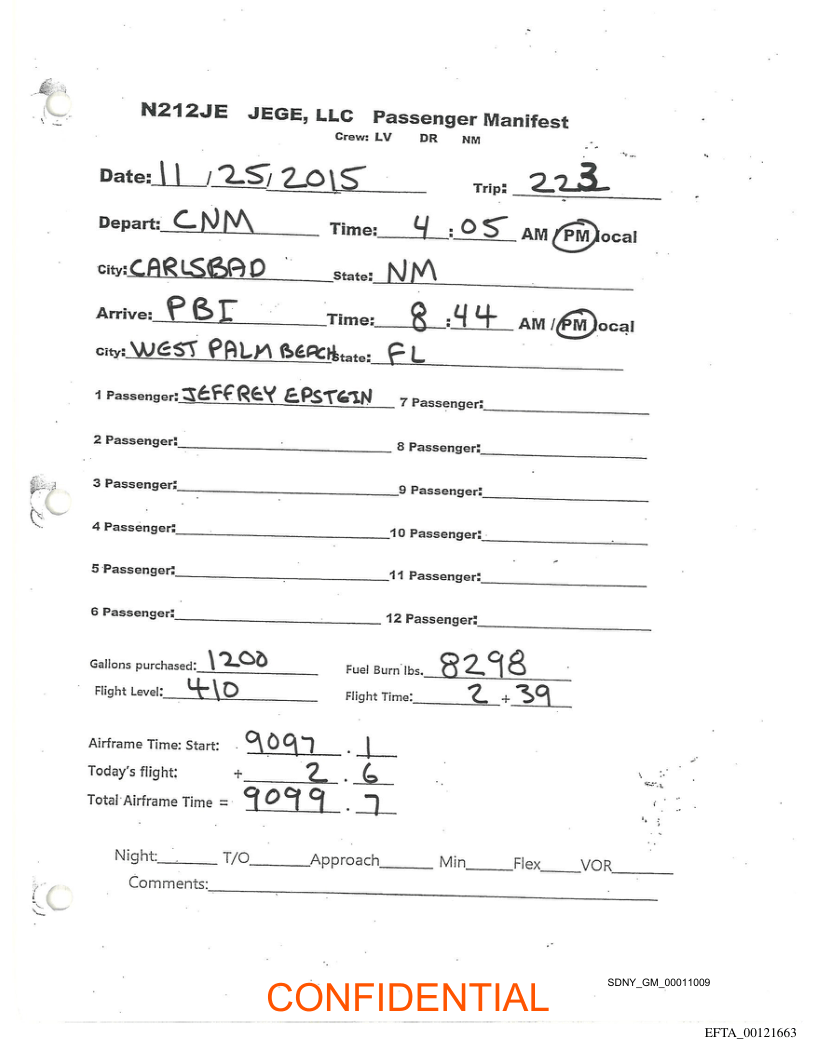 N212JE JEGE, LLC Passenger Manifest
Crew: LV DR NM
Date: 11 / 25 / 2015 Trip: 223
Depart: CNM Time: 4 : 05 AM / PM local
City: CARLSBAD State: NM
Arrive: PBI Time: 8 : 44 AM / PM local
City: WEST PALM BEACH State: FL
1 Passenger: JEFFREY EPSTEIN 7 Passenger:
2 Passenger: 8 Passenger:
3 Passenger: 9 Passenger:
4 Passenger: 10 Passenger:
5 Passenger: 11 Passenger:
6 Passenger: 12 Passenger:
Gallons purchased: 1200 Fuel Burn lbs. 8298
Flight Level: 410 Flight Time: 2 + 39
Airframe Time: Start: 9097 . 1
Today's flight: + 2 . 6
Total Airframe Time = 9099 . 7
Night: T/O Approach Min Flex VOR
Comments:
SDNY_GM_00011009
CONFIDENTIAL
EFTA_00121663